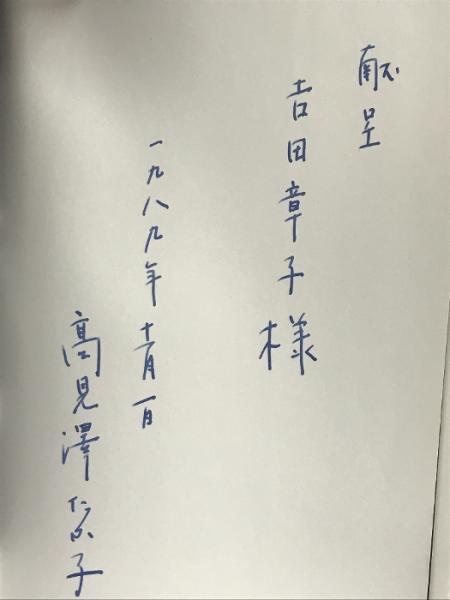 献呈
吉田章子様
一九八九年十一月一日
高見澤